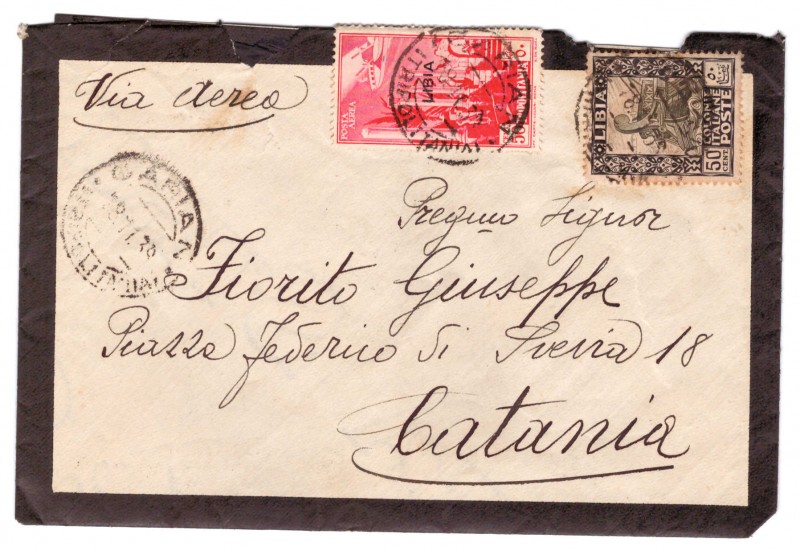 Via Aerea
POSTA AEREA
LIBIA
50
LIBIA
COLONIE
ITALIANE
POSTE
50 CENT
GARIAN
Pregmo Signor
Fiorito Giuseppe
Piazza Federico di Svevia 18
Catania